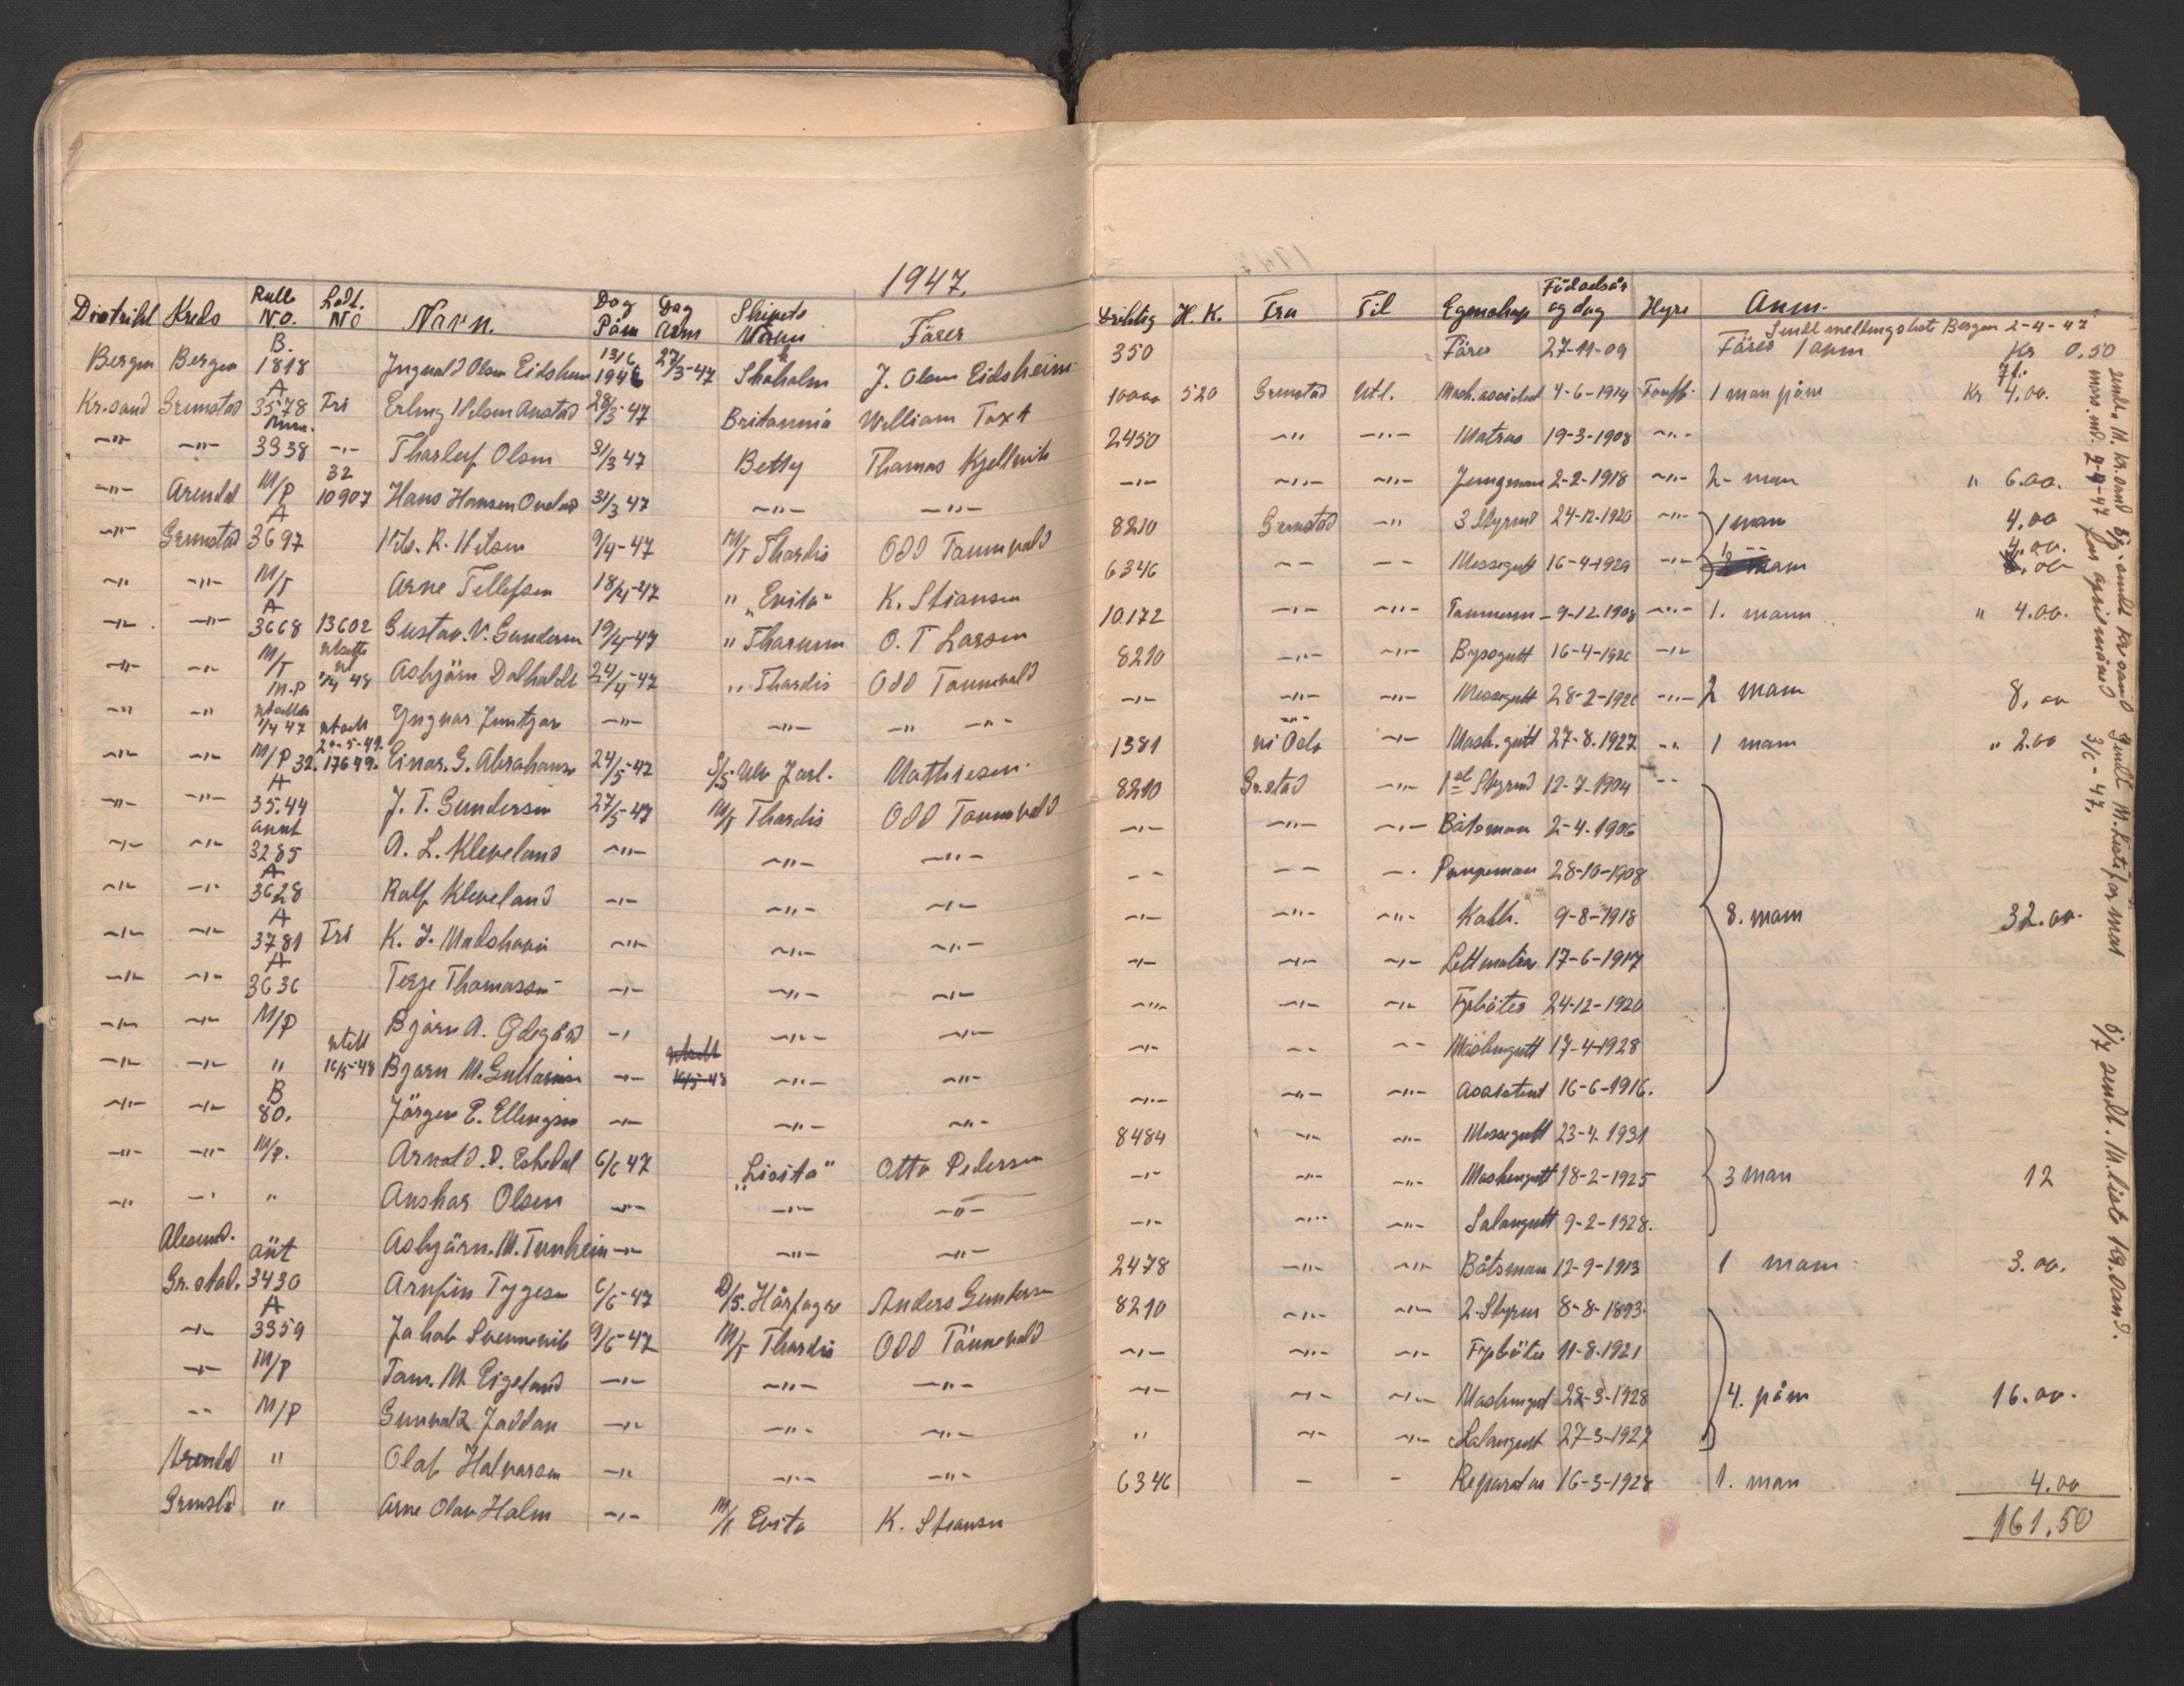 1947.
Distrikt Kreds Rulle No. Lodt. No Navn. Dag Påm Dag Avm Skipets Navn Förer
Drihtig H. K. Fra Til Egenskap Födselsår og dag Hyre Anm.
Sendt meldingslist Bergen 2-4-47
Bergen Bergen B. 1818 Ingvald Olsen Eidsheim 13/6 1946 27/3-47 Skoholm J. Olsen Eidsheim 350 Förer 27-11-09 Förer 1 avm Kr 0.50
Kr.sand Grimstad A 3578 Fri Erling Nilsen Anstad 28/3-47 Britannia William Taxt 10000 520 Grimstad Utl. Mask.assistent 4-6-1914 Tariff. 1 man påm Kr 4,00.
-"- -"- Ann. 3938 -"- Tharluf Olsen 31/3 47 Betty Thomas Kjellvik 2450 -"- -"- Matros 19-3-1908 -"-
-"- Arendal M/P 32 10907 Hans Hansen 31/3 47 -"- -"- -"- -"- -"- Jungman 2-2-1918 -"- 2- man " 6.00.
-"- Grimstad A 3697 Nils. R. Nilsen 9/4-47 M/T Thordis Odd Tannevold 8210 Grimstad -"- 3 Styrmd 24-12-1920 -"- 1 man 4,00
-"- -"- M/T Arne Tellefsen 18/4-47 " "Evita" K. Stiansen 6346 -"- -"- Messegutt 16-4-1929 -"- man 4.00.
-"- -"- A 3668 13602 Gustav. V. Gundersen 19/4-47 " Tharunn O. T Larsen 10.172 -"- -"- Tömmerm 9-12-1908 -"- 1. mann " 4.00.
-"- -"- M/T 48 Asbjörn Dalholdt 24/4-47 " Thordis Odd Tannevold 8210 -"- -"- Byssgutt 16-4-192 -"-
-"- -"- M.P 1/4 47 Yngvar -"- -"- -"- -"- -"- -"- -"- Messegutt 28-2-192 -"- 2 mann 8,00
-"- -"- M/P 20-5-49. 32. 17649. Einar. G. Abrahamsen 24/5-47 S/S Ulv Jarl. Mathiesen 1381 Oslo -"- Mask. gutt 27-8.1927 -"- 1 mann " 2.00
-"- -"- A 35.44 J. T. Gundersen 27/5-47 M/T Thordis Odd Tannevold 8210 Gr.stad -"- 1st Styrmd 12-7-1904 -"-
-"- -"- annt 3285 A. L. Kleveland -"- -"- -"- -"- -"- -"- Båtsman 2-4-1906
-"- -"- A 3628 Ralf Kleveland -"- -"- -"- -"- -"- -"- Pumpeman 28-10-1908
-"- -"- A 3781 Fri K. J. Madshaven -"- -"- -"- -"- -"- -"- Kokk. 9-8-1918 8. mann 32.00.
-"- -"- A 3636 Terje Thomassen -"- -"- -"- -"- -"- -"- Lettmatros 17-6-1917
-"- -"- M/P Björn A. Ödegård -"- -"- -"- -"- -"- -"- Fyrböter 24-12-1920
-"- -"- " 16/5-48 Bjarn M. Gullaksen -"- 16/5-48 -"- -"- -"- -"- -"- Maskingutt 17-4-1928
-"- -"- B 80. Jörgen E. Ellingsen -"- -"- -"- -"- -"- -"- Assistent 16-6-1916.
-"- -"- M/P. Arnold. D. Eskedal 6/6 47 "Lisita" Otto Pedersen 8484 -"- -"- Messegutt 23-4.1931
-"- -"- " Anskar Olsen -"- -"- -"- -"- -"- -"- Maskingutt 18-2-1925 3 man 12
Alesund. Asbjörn. M. Tunheim -"- -"- -"- -"- -"- -"- Salongutt 9-2-1928.
Gr.stad. ant 3430 Arnfin Tygesen 6/6-47 D/S. Hårfagre Anders Gundersen 2478 -"- -"- Båtsman 12-9-1913 1 mann 3.00.
-"- A 3359 Jakob Svennevik 9/6-47 M/T Thordis Odd Tannevold 8210 -"- -"- 2. Styrm 8-8-1893
-"- M/P Tom. M. Eigeland -"- -"- -"- -"- -"- -"- Fyrböter 11-8.1921
-"- M/P Gunvald Jaddan -"- -"- -"- -"- -"- -"- Maskingut 28-3-1928 4. påm 16.00.
Arendal " Olaf Halvorsen -"- -"- -"- " -"- -"- Salongutt 27-3-1927
Grimstad " Arne Olav Holm -"- M/T Evita K. Stiansen 6346 - - Reparatør 16-3-1928 1. man 4.00
161.50
sendt. M. kr.sand 8/9. sendt kr.sand Sendt M. liste for mai 3/6-47. 5/7 sendt. M. liste kr.sand.
mars. md. 2-4-47 for april måned